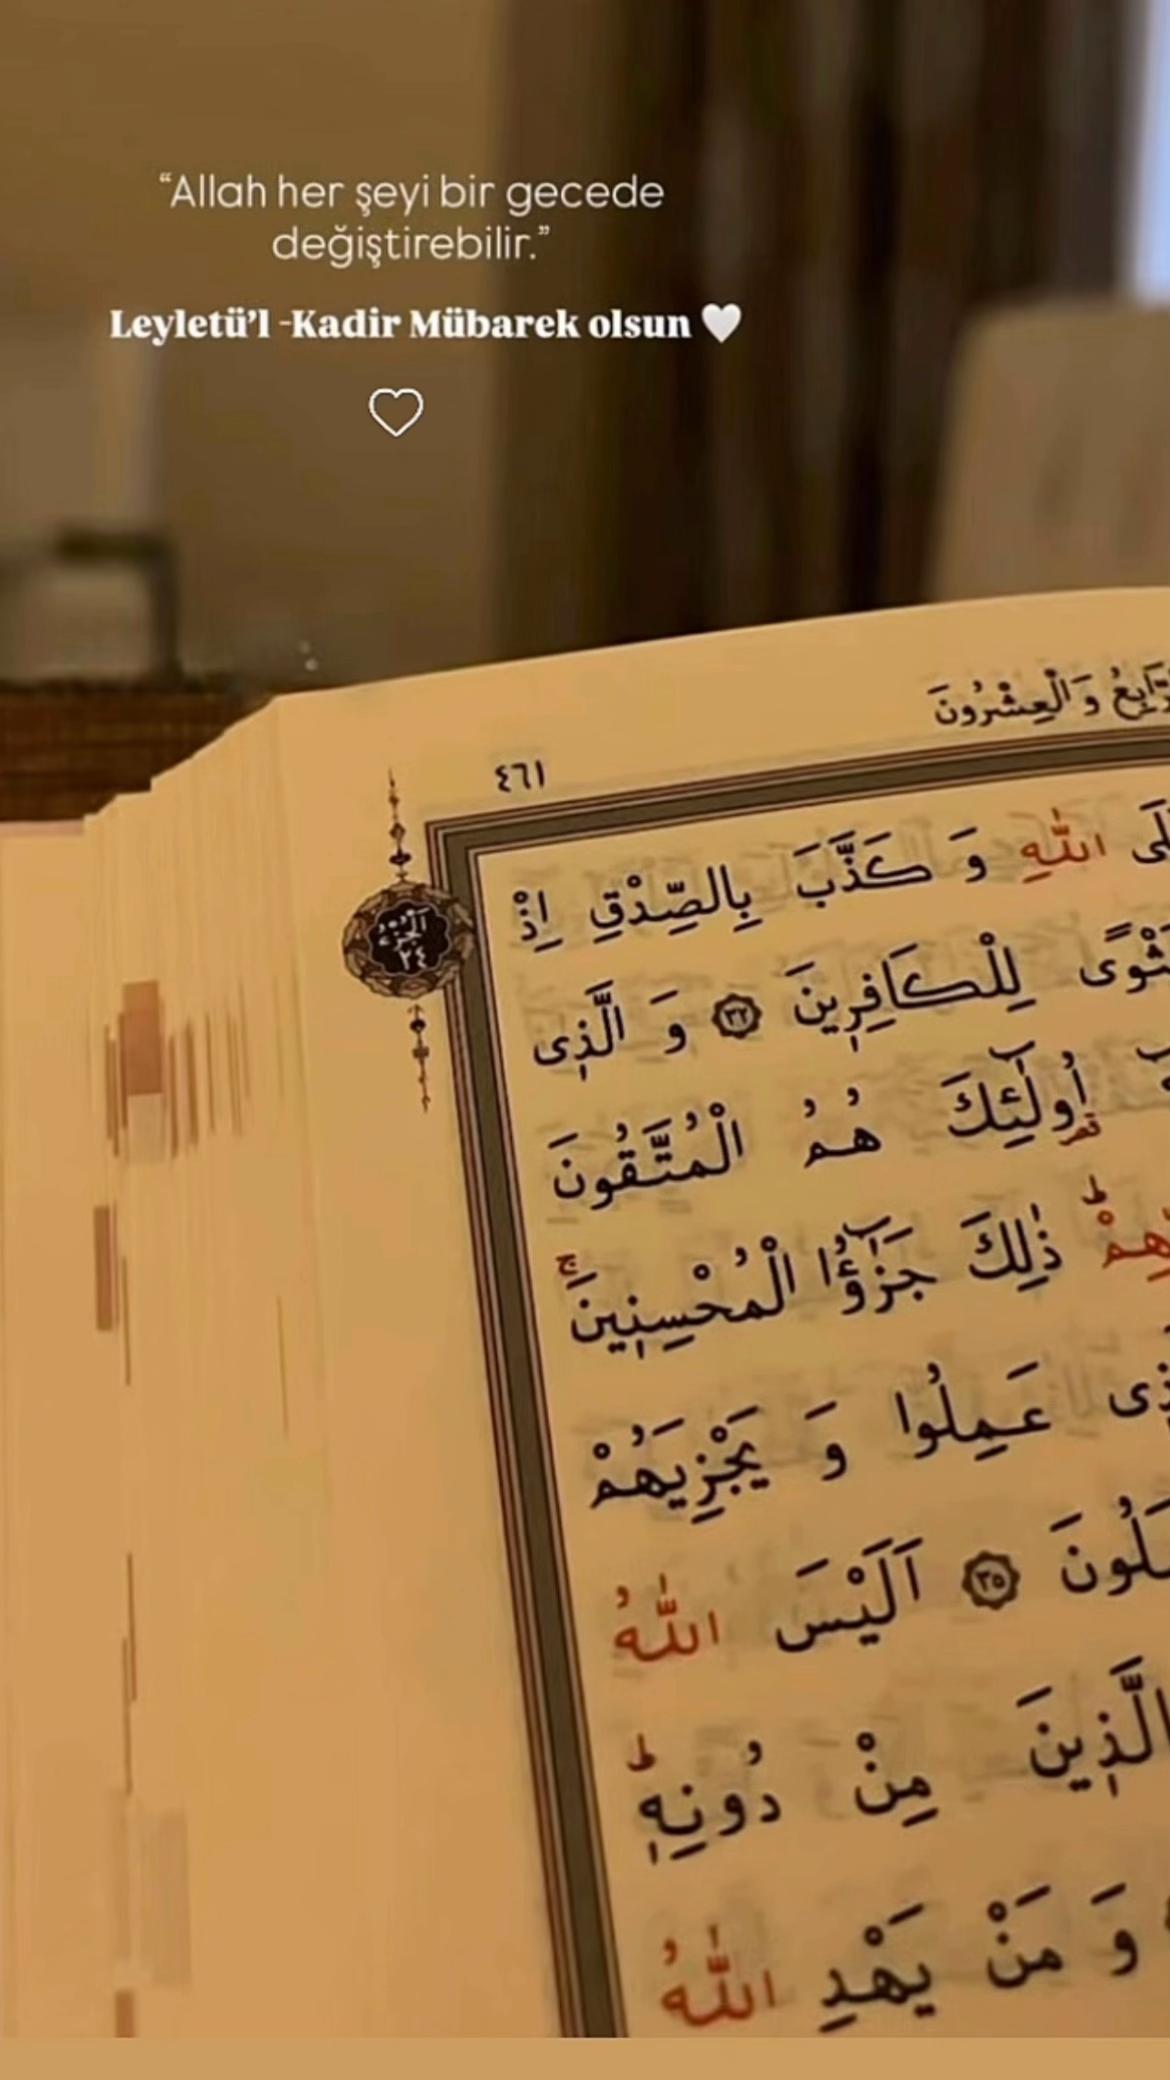 “Allah her şeyi bir gecede
değiştirebilir.”
Leyletü’l -Kadir Mübarek olsun 🤍
وَالْعِشْرُونَ
٤٦١
اللّٰهِ وَ كَذَّبَ بِالصِّدْقِ اِذْ
لِلْكَافِرِينَ ٣٢ وَ الَّذِى
اُولٰٓئِكَ هُمُ الْمُتَّقُونَ
ذٰلِكَ جَزٰٓؤُا الْمُحْسِنِينَ
عَمِلُوا وَ يَجْزِيَهُمْ
٣٥ اَلَيْسَ اللّٰهُ
الَّذِينَ مِنْ دُونِهٖ
وَ مَنْ يَهْدِ اللّٰهُ